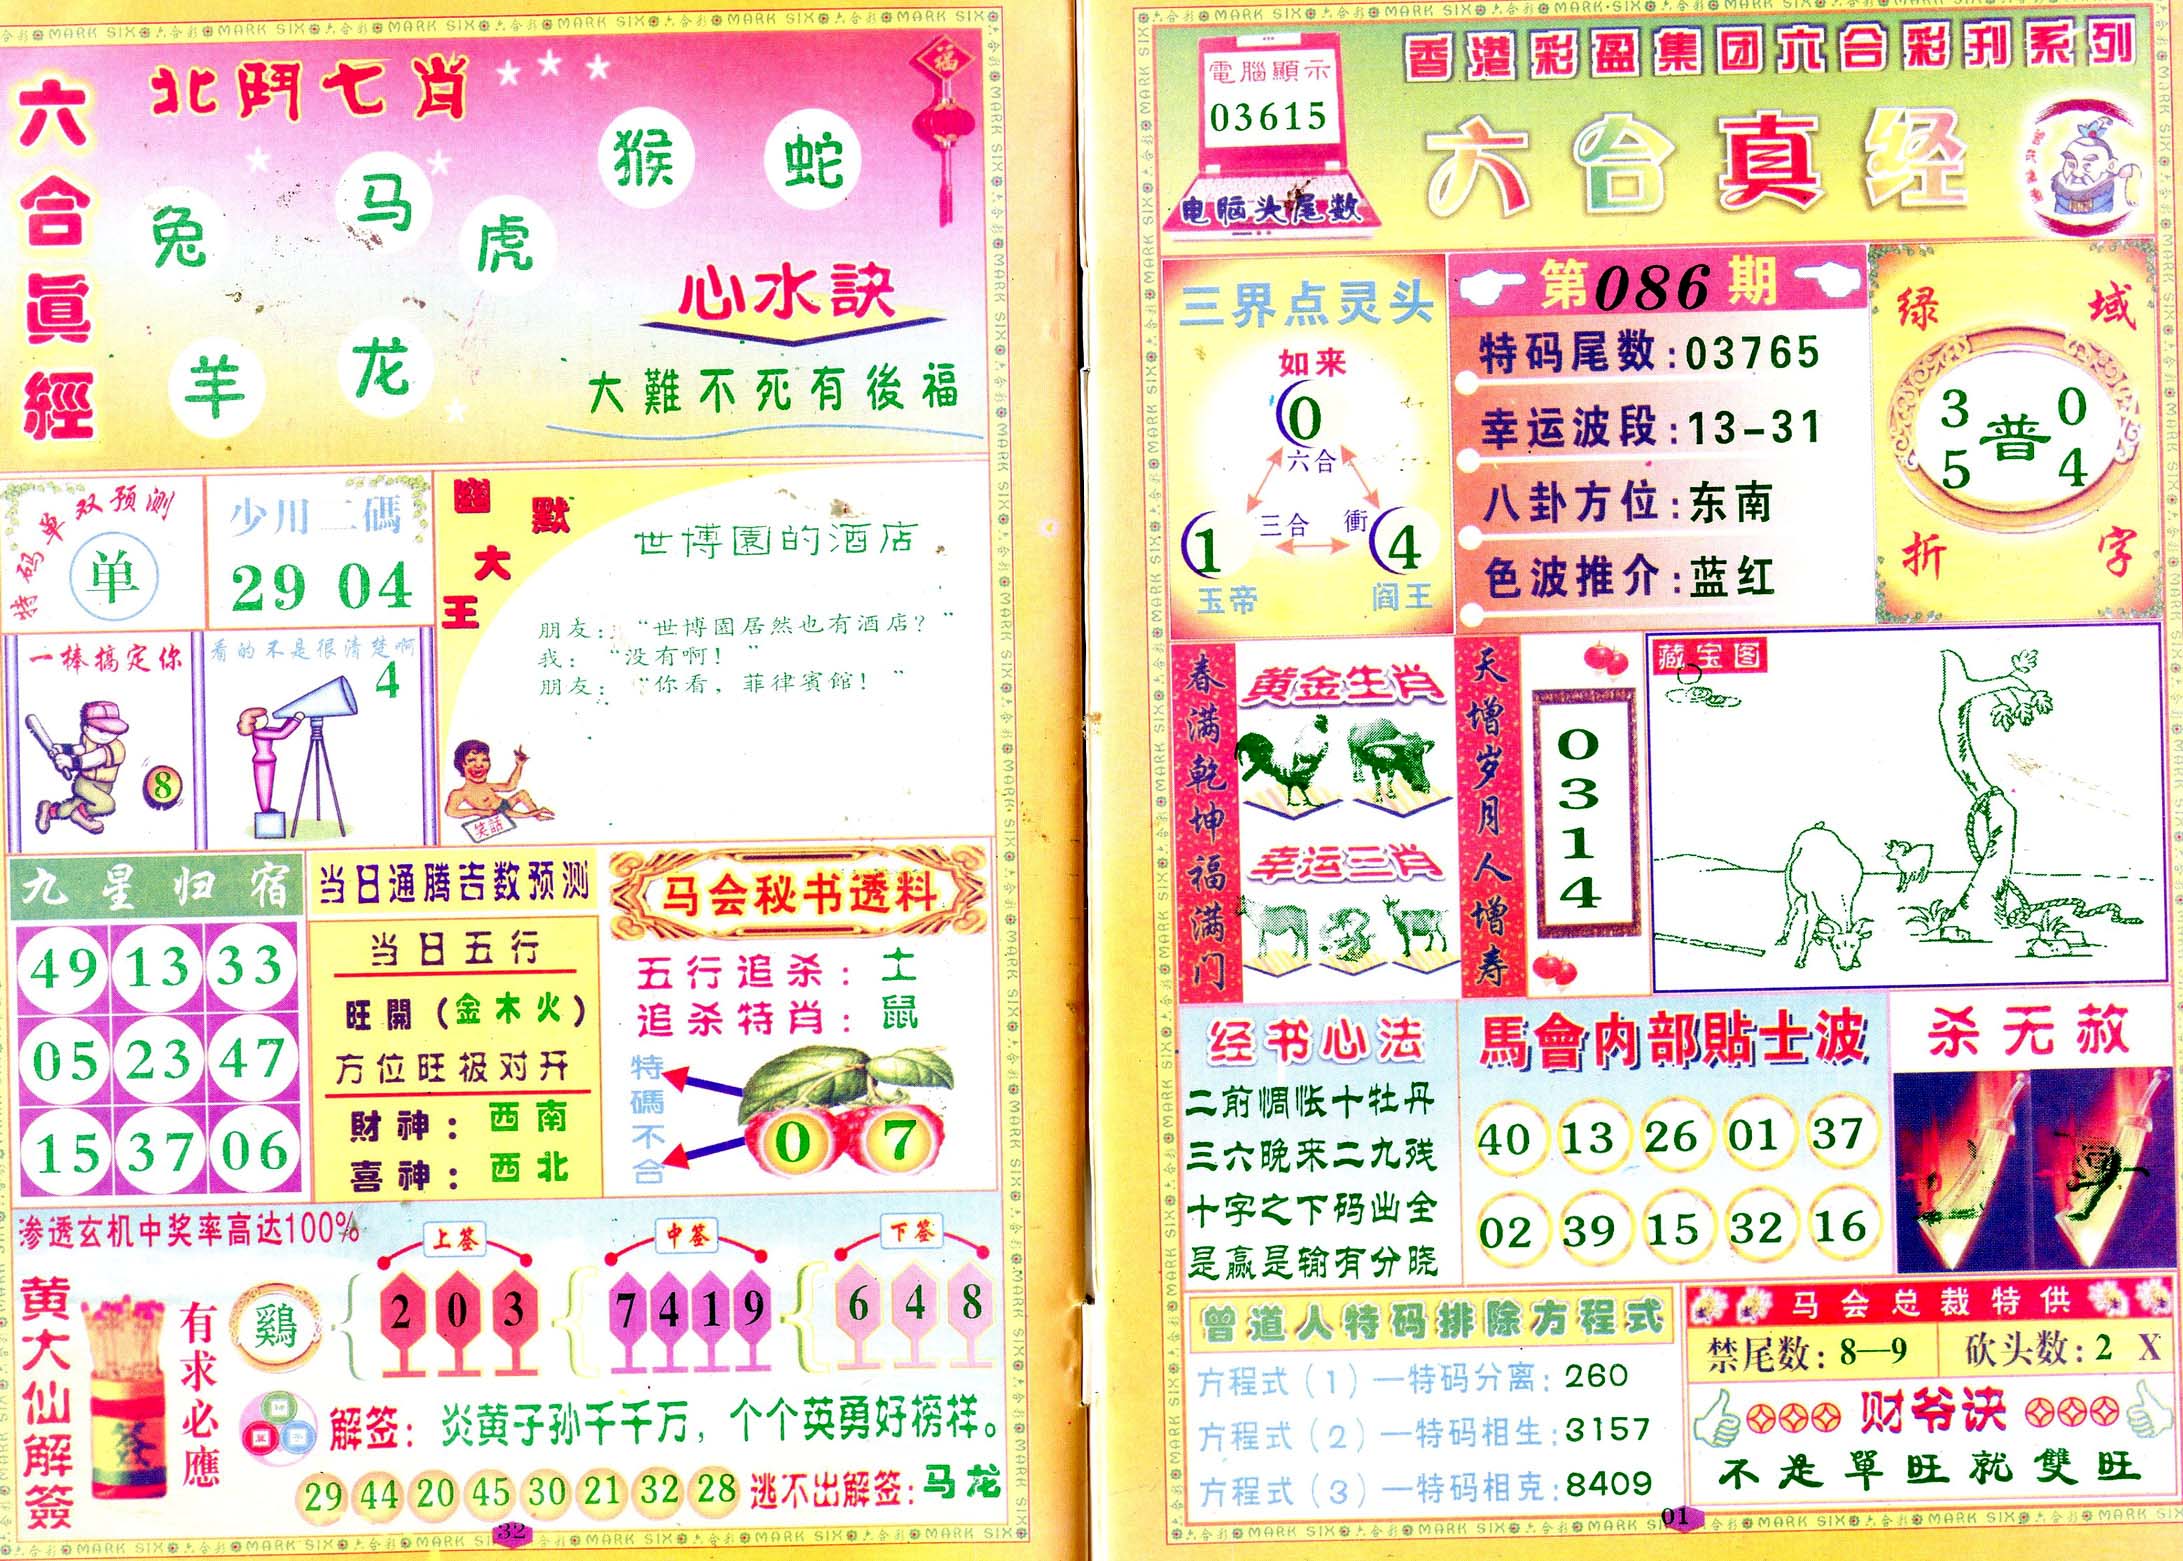 六合真經
北鬥七肖
猴
蛇
马
兔
虎
羊
龙
福
心水訣
大難不死有後福
特码单双预测
单
少川二碼
29 04
幽默大王
世博園的酒店
朋友：“世博園居然也有酒店？”
我：“没有啊！”
朋友：“你看，菲律賓館！”
笑話
一棒搞定你
8
看的不是很清楚啊
4
九星归宿
49 13 33
05 23 47
15 37 06
当日通腾吉数预测
当日五行
旺開（金木火）
方位旺极对开
財神：西南
喜神：西北
马会秘书透料
五行追杀：土
追杀特肖：鼠
特碼不合
0 7
渗透玄机中奖率高达100%
黄大仙解簽
签
有求必應
鷄
上签
2 0 3
中签
7 4 1 9
下签
6 4 8
解签：炎黄子孙千千万，个个英勇好榜样。
29 44 20 45 30 21 32 28 逃不出解签：马龙
32
電腦顯示
03615
电脑头尾数
香港彩盈集团六合彩刊系列
六合真经
三界点灵头
如来
0
六合
三合 衝
1 4
玉帝 阎王
第086期
特码尾数：03765
幸运波段：13-31
八卦方位：东南
色波推介：蓝红
绿域折字
3 0
普
5 4
春满乾坤福满门
黄金生肖
幸运三肖
天增岁月人增寿
0314
藏宝图
经书心法
二前惆怅十牡丹
三六晚来二九残
十字之下码出全
是赢是输有分晓
馬會内部貼士波
40 13 26 01 37
02 39 15 32 16
杀无赦
曾道人特码排除方程式
方程式（1）—特码分离：260
方程式（2）—特码相生：3157
方程式（3）—特码相克：8409
马会总裁特供
禁尾数：8—9 砍头数：2 X
财爷诀
不是單旺就雙旺
01